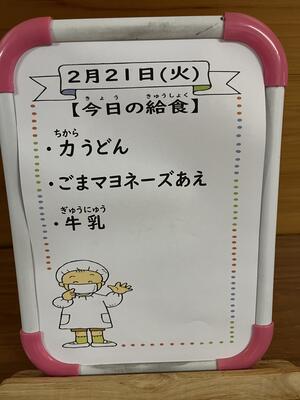 2月21日(火)
きょう きゅうしょく
【今日の給食】
ちから
・力うどん
・ごまマヨネーズあえ
ぎゅうにゅう
・牛乳